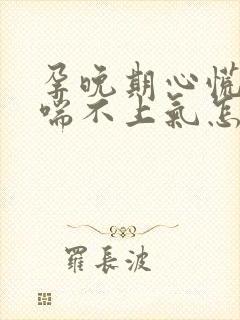 孕晚期心慌
喘不上氣怎
羅長波